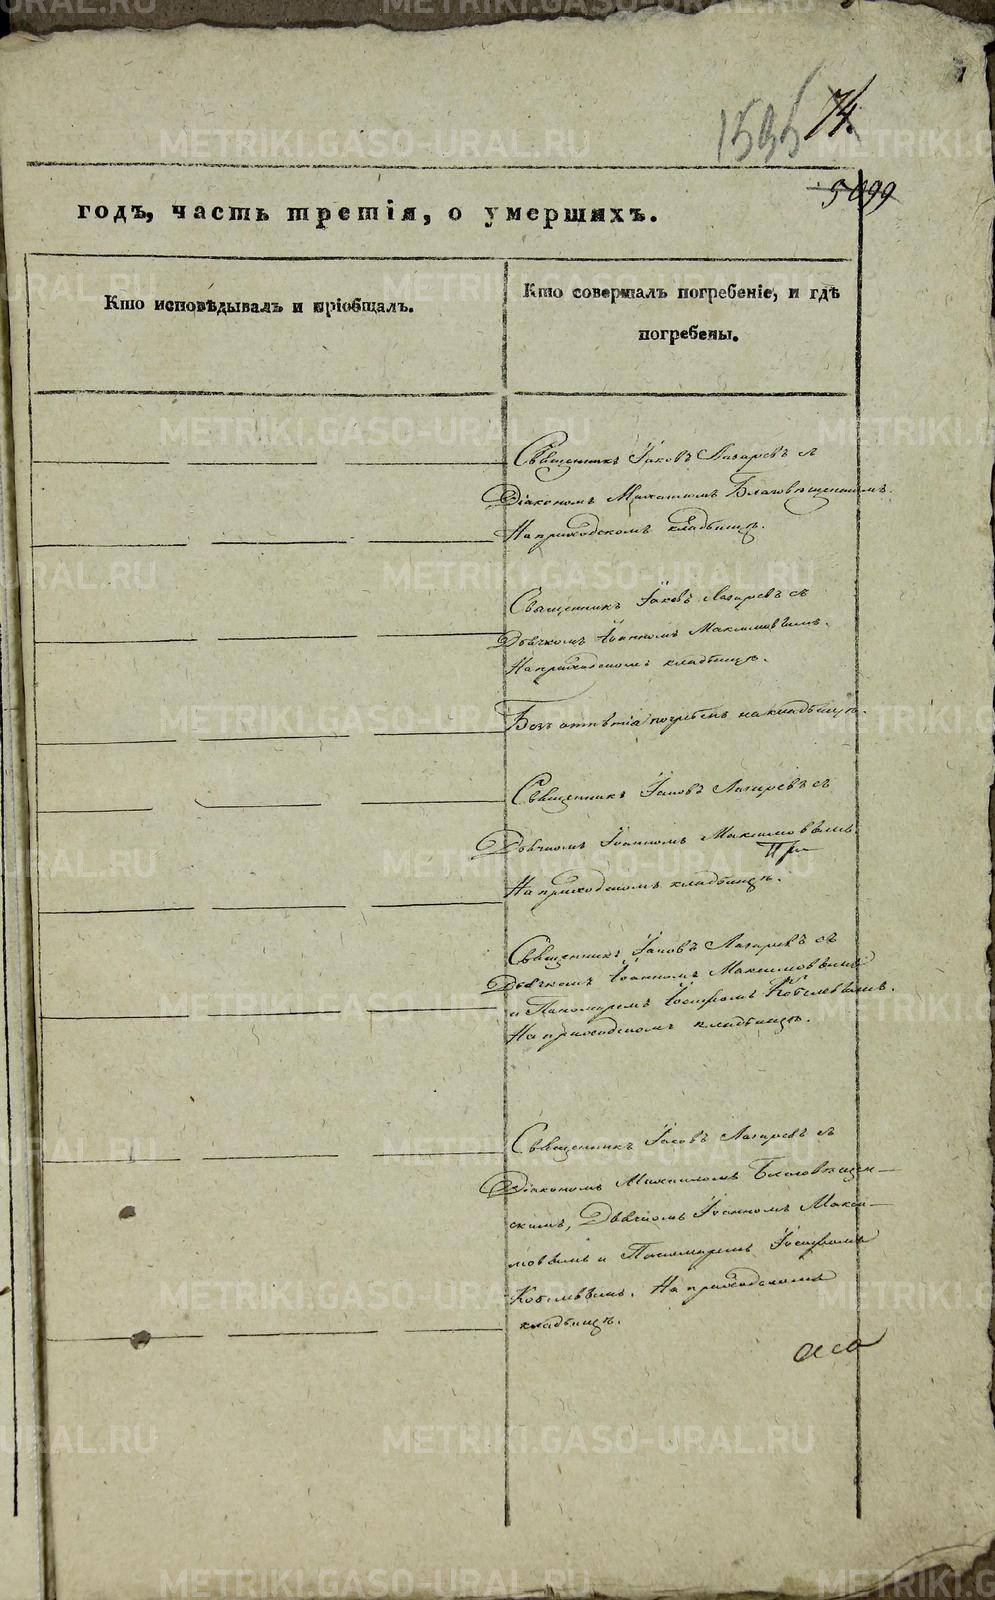 1595 74.
5099
годъ, часть третія, о умершихъ.
Кто исповѣдывалъ и пріобщалъ.
Кто совершалъ погребеніе, и гдѣ
погребены.
Священникъ Іаковъ Лазаревъ съ
Діакономъ Михаиломъ Благовѣщенскимъ.
На приходскомъ кладбищѣ.
Священникъ Іаковъ Лазаревъ съ
Дьячкомъ Іоанномъ Максимовымъ.
На приходскомъ кладбищѣ.
Безъ отпѣтія погребенъ на кладбищѣ.
Священникъ Іаковъ Лазаревъ съ
Дьячкомъ Іоанномъ Максимовымъ.
На приходскомъ кладбищѣ.
Священникъ Іаковъ Лазаревъ съ
Дьячкомъ Іоанномъ Максимовымъ
и Пономаремъ Іосифомъ
На приходскомъ кладбищѣ.
Священникъ Іаковъ Лазаревъ съ
Діакономъ Михаиломъ Благовѣщен-
скимъ, Дьячкомъ Іоанномъ Макси-
мовымъ и Пономаремъ Іосифомъ
На приходскомъ
кладбищѣ.
METRIKI.GASO-URAL.RU